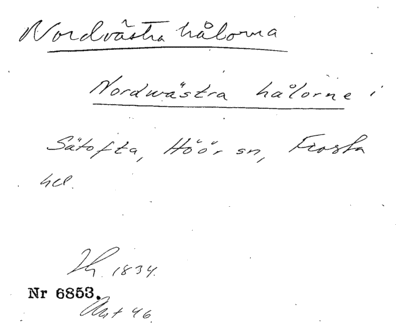 Nordvästra hålorna
Nordwästra hålorne i
Sätofta, Höör sn, Frosta
hd.
1834.
Nr 6853.
46